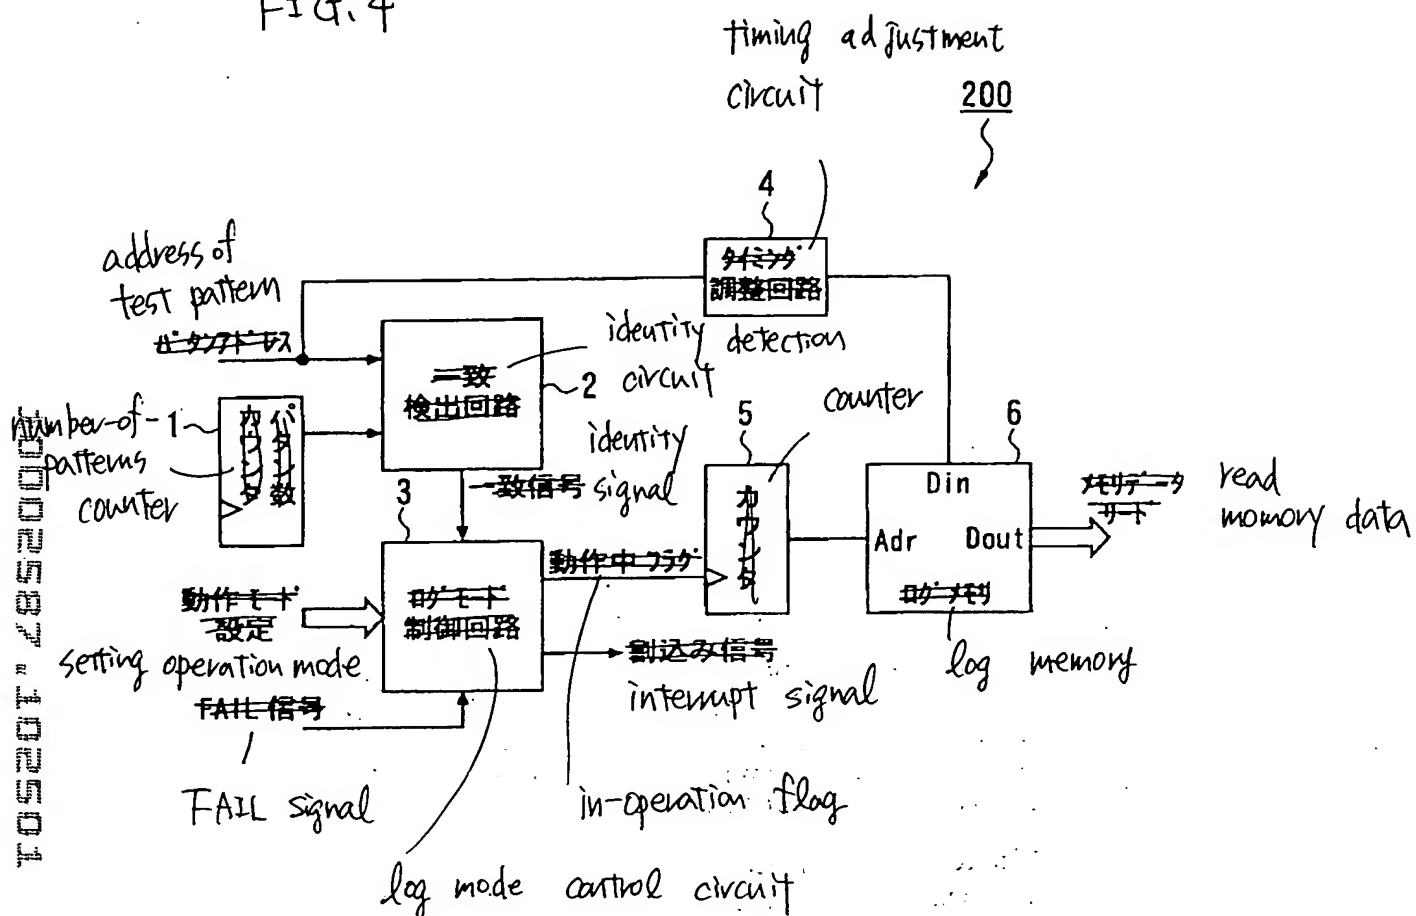 FIG. 4
timing adjustment
circuit
200
4
タイミング
調整回路
address of
test pattern
パターンアドレス
一致
検出回路
2
identity detection
circuit
number-of-
patterns
counter
1
パターン数
カウンタ
identity
signal
一致信号
3
counter
5
カウンタ
6
Din
Adr
Dout
ログメモリ
メモリデータ
リード
read
momory data
log memory
動作モード
設定
setting operation mode
ログモード
制御回路
動作中フラグ
割込み信号
interrupt signal
FAIL信号
FAIL signal
in-operation flag
log mode control circuit
10002587.102501